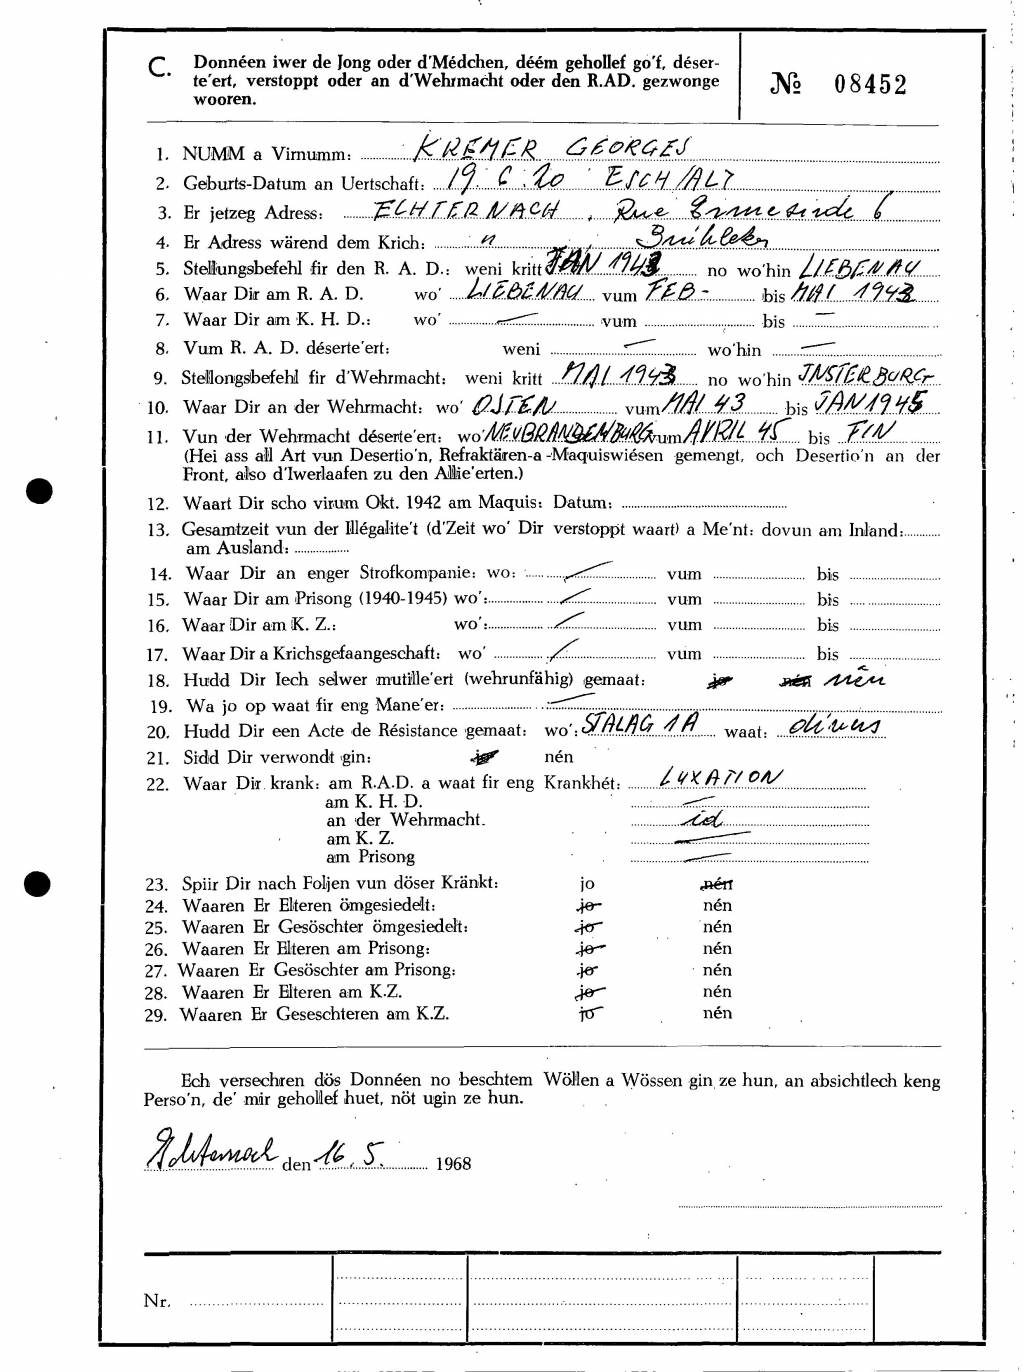 C. Donnéen iwer de Jong oder d'Médchen, déém gehollef go'f, déser-
te'ert, verstoppt oder an d'Wehrmacht oder den R.AD. gezwonge
wooren.
№ 08452
1. NUMM a Virnumm: KREMER GEORGES
2. Geburts-Datum an Uertschaft: 19.6.20 ESCH/ALZ
3. Er jetzeg Adress: ECHTERNACH, Rue Ermesinde 6
4. Er Adress wärend dem Krich: "
5. Stellungsbefehl fir den R. A. D.: weni kritt JAN 1943 no wo'hin LIEBENAU
6. Waar Dir am R. A. D. wo' LIEBENAU vum FEB- bis MAI 1943
7. Waar Dir am K. H. D.: wo' — vum bis —
8. Vum R. A. D. déserte'ert: weni — wo'hin —
9. Stellongsbefehl fir d'Wehrmacht: weni kritt MAI 1943 no wo'hin INSTERBURG
10. Waar Dir an der Wehrmacht: wo' OSTEN vum MAI 43 bis JAN 1945
11. Vun der Wehrmacht déserte'ert: wo' NEUBRANDEMBURG vum AVRIL 45 bis FIN
(Hei ass all Art vun Desertio'n, Refraktären-a-Maquiswiésen gemengt, och Desertio'n an der
Front, also d'Iwerlaafen zu den Allie'erten.)
12. Waart Dir scho virum Okt. 1942 am Maquis: Datum:
13. Gesamtzeit vun der Illégalite't (d'Zeit wo' Dir verstoppt waart) a Me'nt: dovun am Inland:
am Ausland:
14. Waar Dir an enger Strofkompanie: wo: — vum bis
15. Waar Dir am Prisong (1940-1945) wo': — vum bis
16. Waar Dir am K. Z.: wo': — vum bis
17. Waar Dir a Krichsgefaangeschaft: wo' — vum bis
18. Hudd Dir Iech selwer mutille'ert (wehrunfähig) gemaat: jo nén nên
19. Wa jo op waat fir eng Mane'er: —
20. Hudd Dir een Acte de Résistance gemaat: wo': STALAG 1A waat: divers
21. Sidd Dir verwondt gin: jo nén
22. Waar Dir krank: am R.A.D. a waat fir eng Krankhét: LUXATION
am K. H. D. —
an der Wehrmacht. id
am K. Z. —
am Prisong —
23. Spiir Dir nach Foljen vun döser Kränkt: jo nén
24. Waaren Er Elteren ömgesiedelt: jo nén
25. Waaren Er Gesöschter ömgesiedelt: jo nén
26. Waaren Er Elteren am Prisong: jo nén
27. Waaren Er Gesöschter am Prisong: jo nén
28. Waaren Er Elteren am K.Z. jo nén
29. Waaren Er Geseschteren am K.Z. jo nén
Ech versechren dös Donnéen no beschtem Wöllen a Wössen gin ze hun, an absichtlech keng
Perso'n, de' mir gehollef huet, nöt ugin ze hun.
Echternach den 16. 5. 1968
Nr.